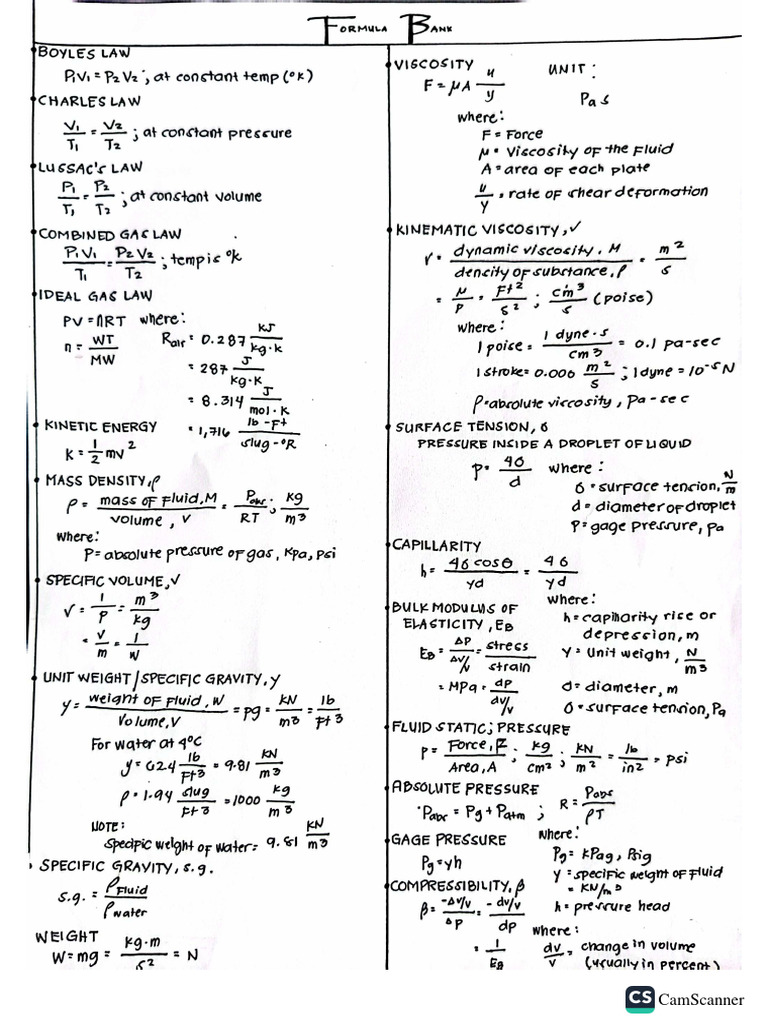 FORMULA BANK
BOYLES LAW
P₁V₁ = P₂V₂ ; at constant temp (°K)
CHARLES LAW
V₁/T₁ = V₂/T₂ ; at constant pressure
LUSSAC'S LAW
P₁/T₁ = P₂/T₂ ; at constant volume
COMBINED GAS LAW
P₁V₁/T₁ = P₂V₂/T₂ ; temp is °K
IDEAL GAS LAW
PV = nRT where:
n = WT/MW
Rair = 0.287 KJ/kg·K
= 287 J/kg·K
= 8.314 J/mol·K
= 1,716 lb-Ft/slug-°R
KINETIC ENERGY
K = 1/2 mv²
MASS DENSITY, ρ
ρ = mass of fluid, M/volume, V = Pabs/RT ; kg/m³
where:
P = absolute pressure of gas, Kpa, psi
SPECIFIC VOLUME, V
V = 1/ρ = m³/kg
= V/m = 1/W
UNIT WEIGHT/SPECIFIC GRAVITY, γ
γ = weight of fluid, W/Volume, V = ρg = kN/m³ = lb/Ft³
For water at 4°C
γ = 624 lb/Ft³ = 9.81 kN/m³
ρ = 1.94 slug/Ft³ = 1000 kg/m³
NOTE:
Specific weight of water = 9.81 KN/m³
SPECIFIC GRAVITY, s.g.
s.g. = ρFluid/ρwater
WEIGHT
W = mg = kg·m/s² = N
VISCOSITY UNIT:
F = μA u/y Pa s
where:
F = Force
μ = Viscosity of the fluid
A = area of each plate
u/y = rate of shear deformation
KINEMATIC VISCOSITY, V
V = dynamic viscosity, M/density of substance, ρ = m²/s
= μ/ρ = Ft²/s² ; cm³/s (poise)
where:
1 poise = 1 dyne·s/cm³ = 0.1 pa-sec
1 stroke = 0.006 m²/s ; 1 dyne = 10⁻⁵ N
ρ = absolute viscosity, Pa-sec
SURFACE TENSION, σ
PRESSURE INSIDE A DROPLET OF LIQUID
P = 4σ/d where:
σ = surface tension, N/m
d = diameter of droplet
P = gage pressure, Pa
CAPILLARITY
h = 4σ cosθ/γd = 4σ/γd
where:
h = capillarity rise or
depression, m
γ = unit weight, N/m³
d = diameter, m
σ = surface tension, Pa
BULK MODULUS OF
ELASTICITY, EB
EB = ΔP/ΔV/V = stress/strain
= MPa = dp/dv/v
FLUID STATIC; PRESSURE
P = Force, F/Area, A ; kg/cm² ; kN/m² = lb/in² = psi
ABSOLUTE PRESSURE
Pabs = Pg + Patm ; R = Pabs/ρT
GAGE PRESSURE
Pg = γh
where:
Pg = kPag, Psig
γ = specific weight of fluid
= KN/m³
h = pressure head
COMPRESSIBILITY, β
β = -ΔV/V/ΔP = -dv/v/dp
= 1/EB
where:
dv/v = change in volume
(usually in percent)
CS CamScanner